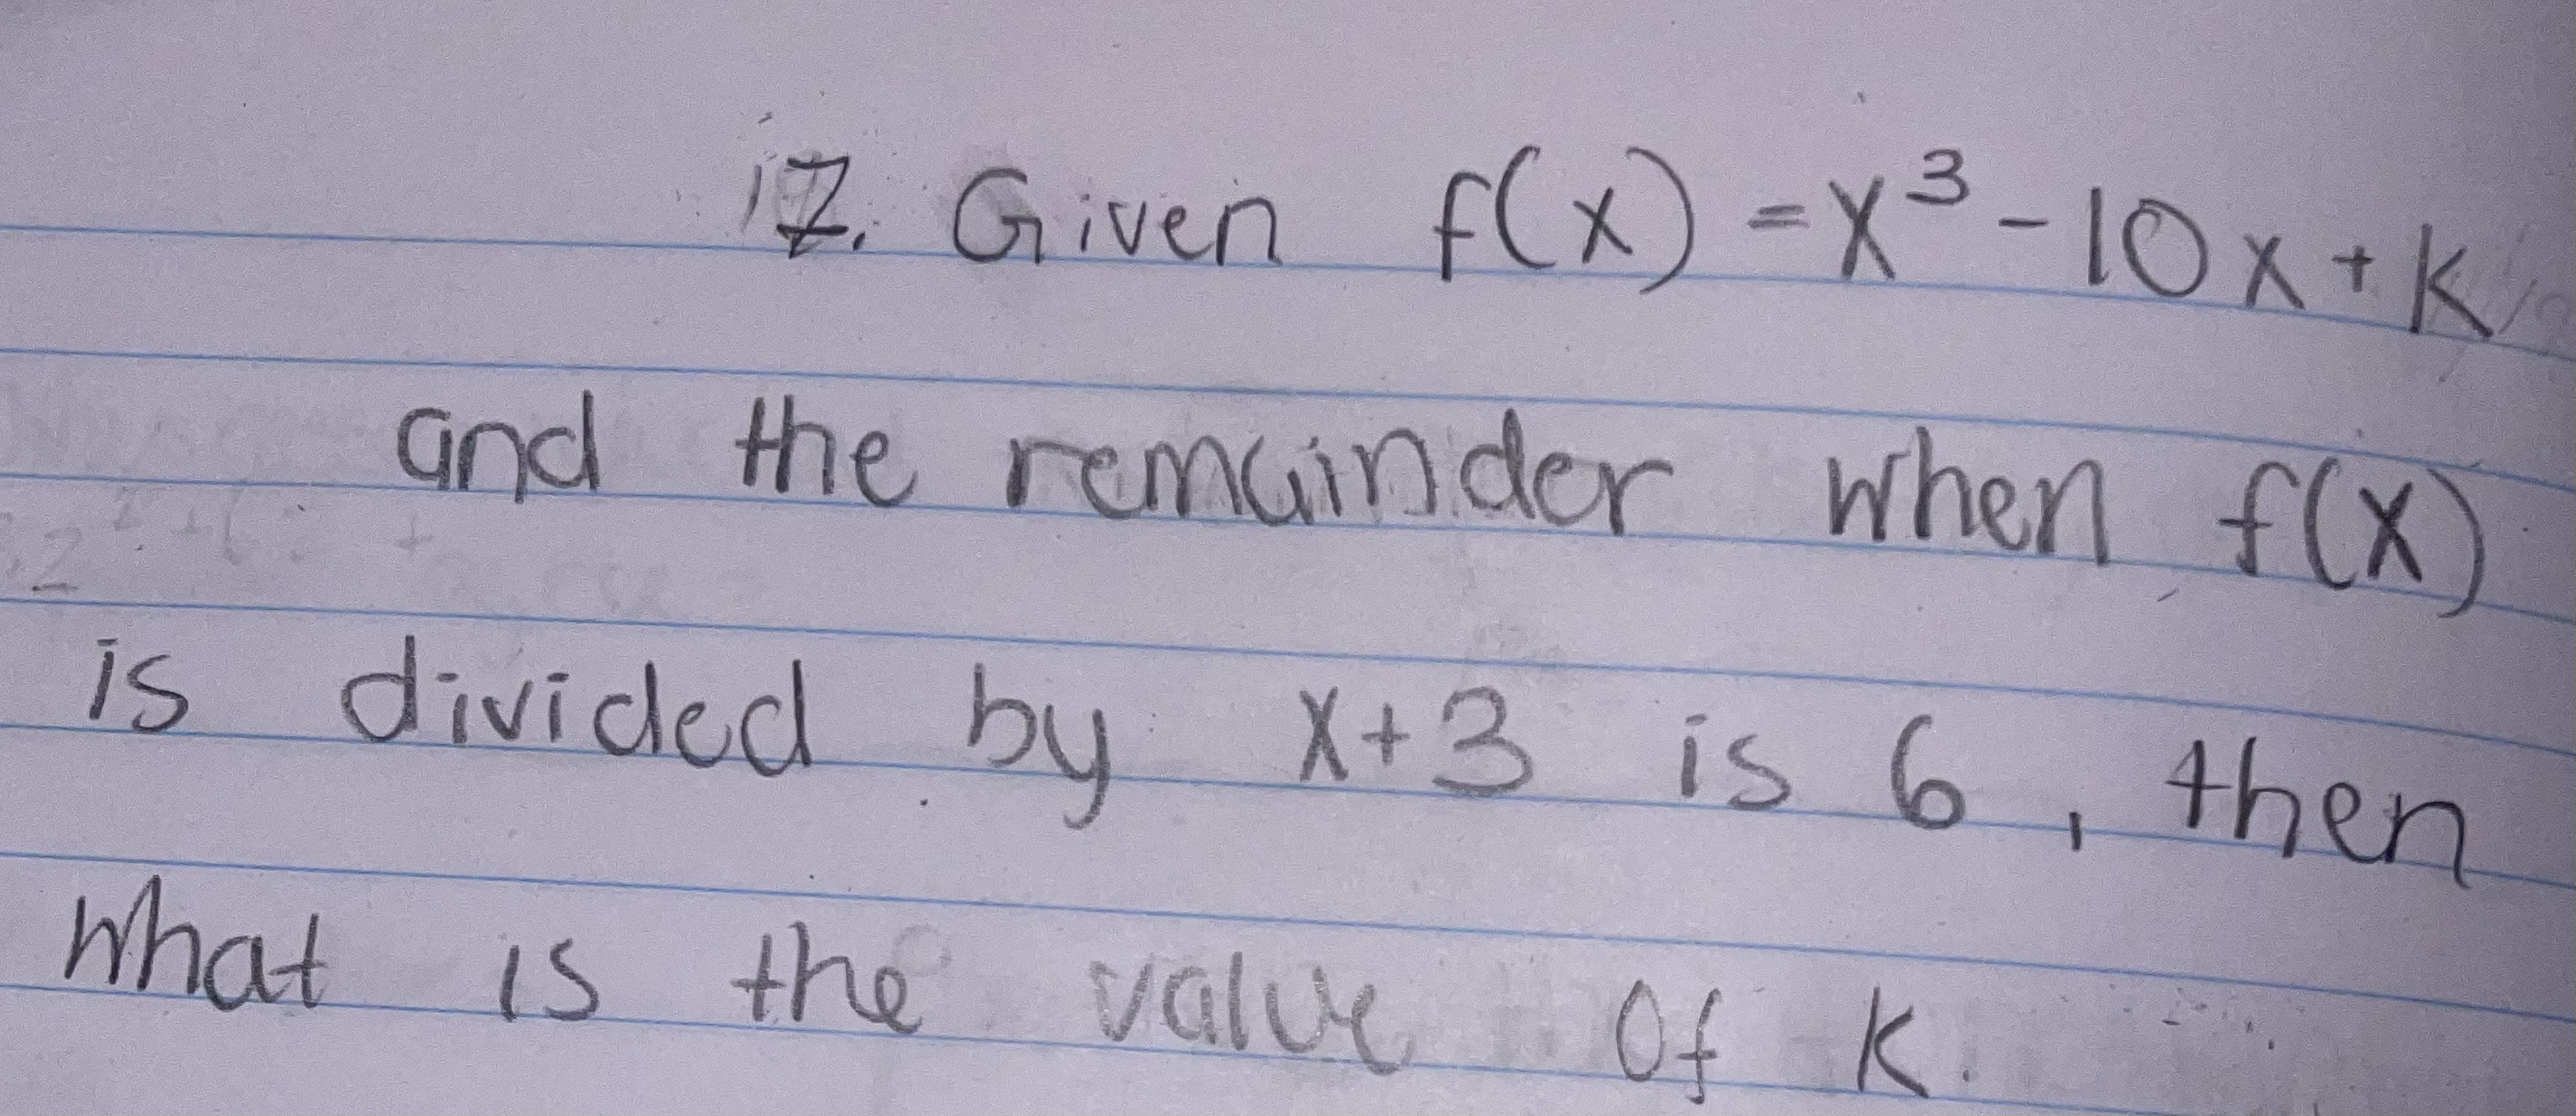 17. Given f(x) = x³ - 10x + k
and the remainder when f(x)
is divided by x+3 is 6, then
what is the value of k.